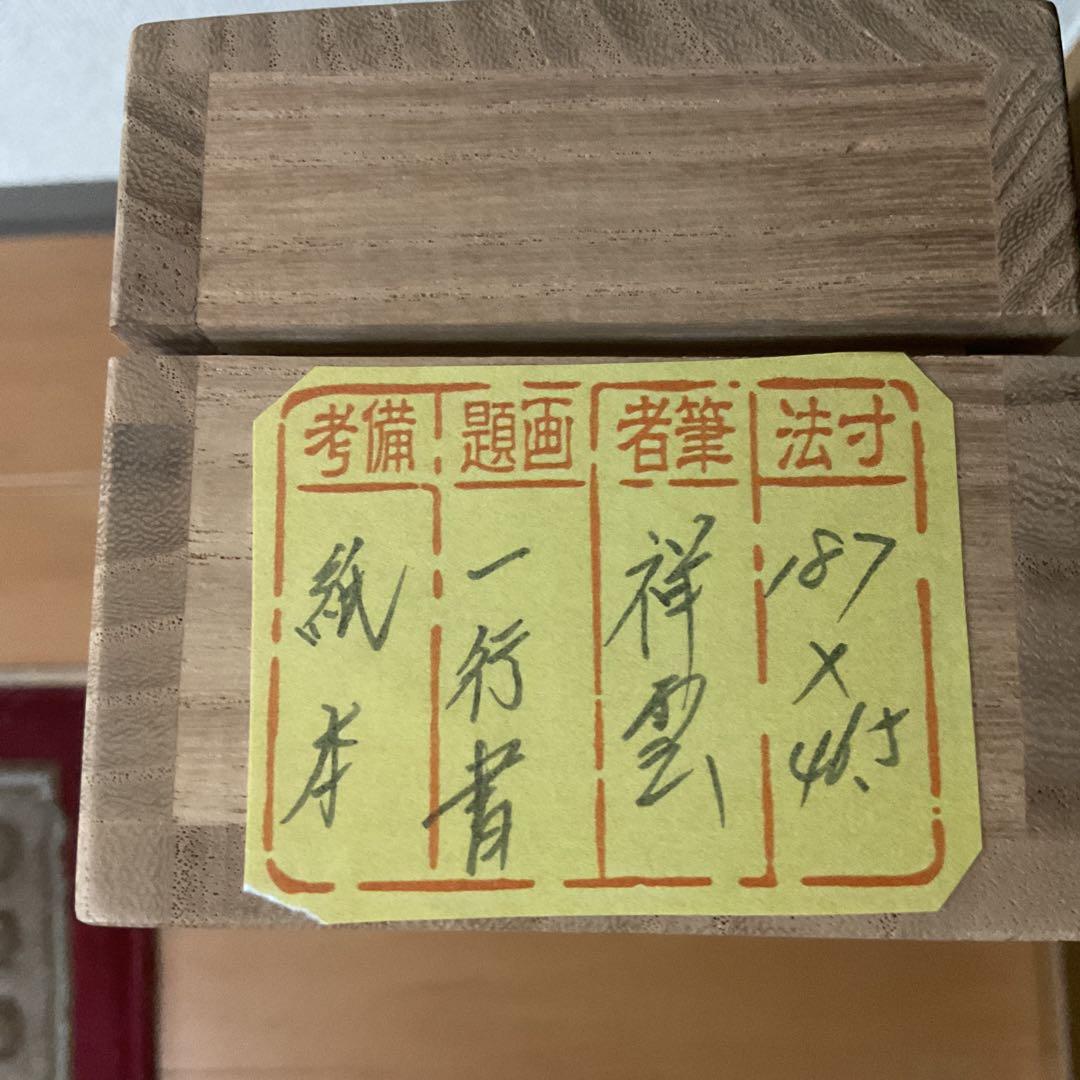 寸法
187
×
46.5
筆者
祥雲
画題
一行書
備考
紙本